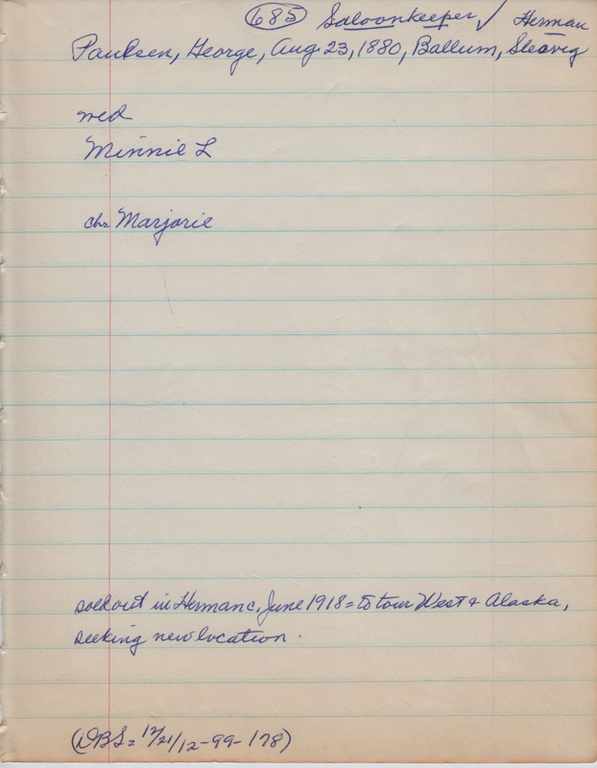 685 Saloonkeeper ✓ Herman
Paulsen, George, Aug 23, 1880, Ballum, Slesvig
med
Minnie L
chr Marjorie
sold out in Herman c. June 1918 = to tour West & Alaska,
seeking new location.
(DBS = 12/21/12-99-178)